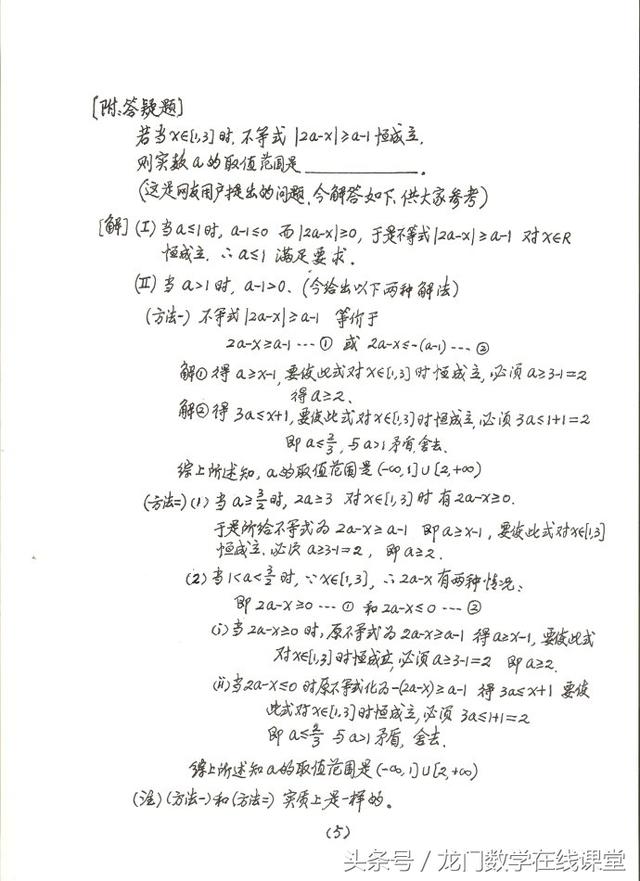 [附:答疑题]
若当x∈[1,3]时,不等式 |2a-x|≥a-1 恒成立,
则实数a的取值范围是__________.
(这是网友用户提出的问题,今解答如下,供大家参考)
[解] (Ⅰ) 当a≤1时, a-1≤0 而|2a-x|≥0, 于是不等式|2a-x|≥a-1 对x∈R
恒成立. ∴a≤1 满足要求.
(Ⅱ) 当a>1时, a-1>0. (今给出以下两种解法)
(方法一) 不等式|2a-x|≥a-1 等价于
2a-x≥a-1 ---- ① 或 2a-x≤-(a-1) ---- ②
解①得 a≥x-1, 要使此式对x∈[1,3]时恒成立, 必须a≥3-1=2
得a≥2.
解②得 3a≤x+1, 要使此式对x∈[1,3]时恒成立, 必须3a≤1+1=2
即a≤2/3, 与a>1矛盾,舍去.
综上所述知, a的取值范围是(-∞,1]∪[2,+∞)
(方法二) (1) 当a≥3/2时, 2a≥3 对x∈[1,3]时有2a-x≥0.
于是所给不等式为 2a-x≥a-1 即a≥x-1, 要使此式对x∈[1,3]
恒成立. 必须a≥3-1=2, 即a≥2.
(2) 当1<a<3/2时, ∵x∈[1,3], ∴2a-x有两种情况:
即 2a-x≥0 ---- ① 和 2a-x≤0 ---- ②
(i) 当2a-x≥0时, 原不等式为2a-x≥a-1 得a≥x-1, 要使此式
对x∈[1,3]时恒成立, 必须a≥3-1=2 即a≥2.
(ii) 当2a-x≤0时原不等式化为-(2a-x)≥a-1 得3a≤x+1 要使
此式对x∈[1,3]时恒成立, 必须 3a≤1+1=2
即a≤2/3 与a>1矛盾, 舍去.
综上所述知a的取值范围是(-∞,1]∪[2,+∞)
(注) (方法一)和(方法二) 实质上是一样的。
(5)
头条号 / 龙门数学在线课堂